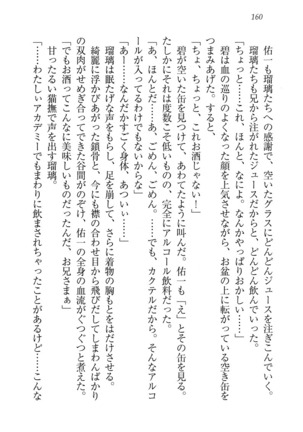 160
佑一も瑠璃たちへの感謝で、空いたグラスにどんどんジュースを注ぎこんでいく。
瑠璃たちも兄から注がれたジュースだからと、どんどん飲んでいった。
「ちょっと……これ、ほんとに、なによ。なんかやっぱりおかしい……」
碧は血の巡りのよくなった顔を上気させながら、お盆の上に転がっている空き缶を
つまみあげた。すると、
「ちょ、ちょっと、これお酒じゃない！」
碧が空いた缶を見つけて、あわてたように叫んだ。佑一も「え」とその缶を見る。
たしかにそれは度数こそ低いものの、完全にアルコール飲料だった。
「あ、ほんとだ……あ、ごめん、ごめん。でも、カクテルだから。そんなアルコ
ールが入ってるわけじゃないから」
「あ――なんだかすごく身体、あつい……」
瑠璃はただれたような声をもらし、足を崩して、さらに着物の胸もとをはだけさせる。
綺麗に浮かびあがった鎖骨と、今にも襟の合わせ目から飛びだしてしまわんばかり
の双肉がせめぎ合ってできた谷間がのぞけ、佑一の全身の血流がぐつぐつと煮えた。
「でもお酒ってこんなに美味しいものだったんだ、お兄さまぁ」
甘ったるい猫撫で声を出す瑠璃。
「……わたしぃアカデミーでもまわりに飲まされちゃったことがあるけど……こんな